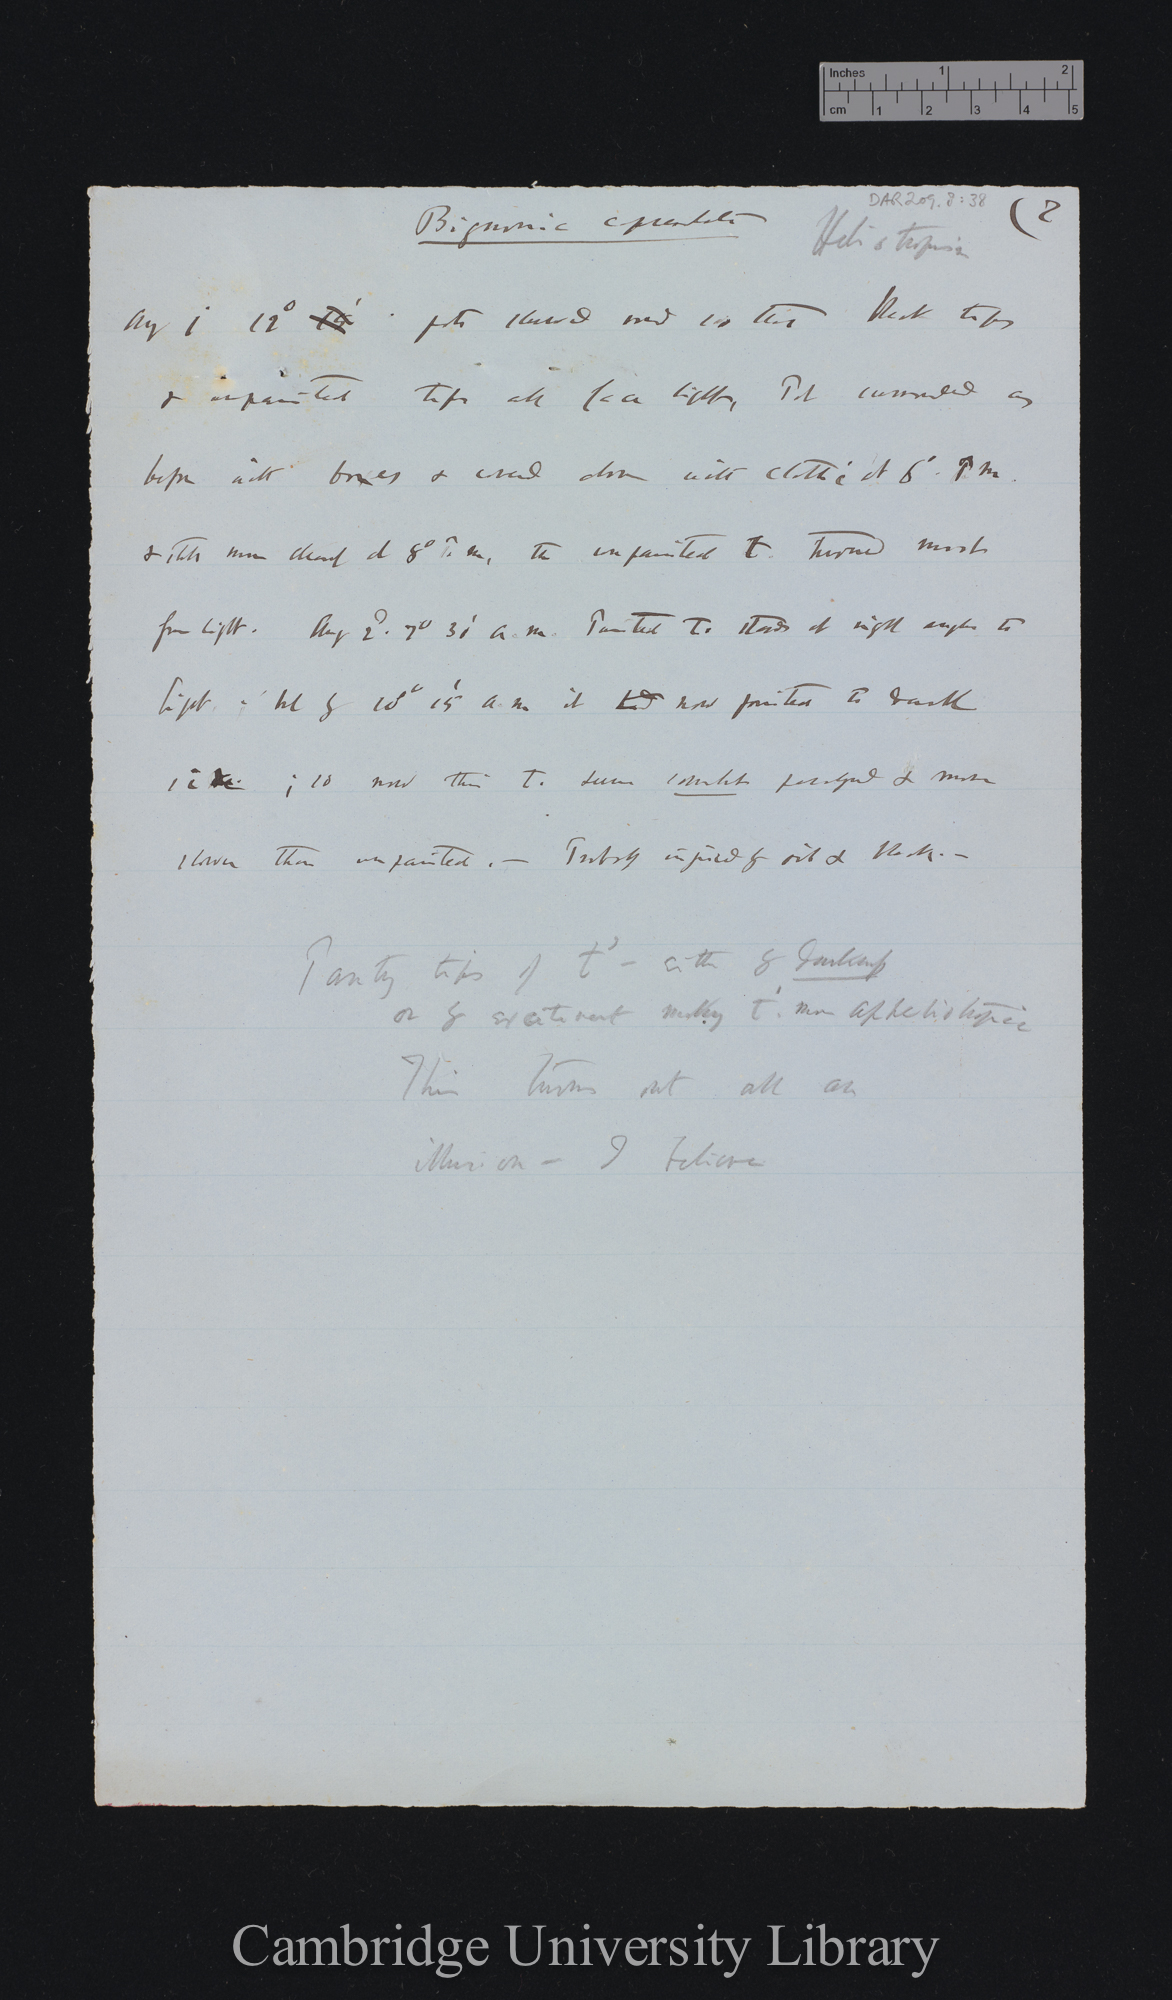 Inches 1 2
cm 1 2 3 4 5
DAR 209.8:38
Bignonia capreolata (2
Heliotropism
Aug 1 12° pots slewed round so that black tips
& unpainted tips all face light, Pot surrounded as
before with boxes & covered above with cloth; at 6°. P.m.
& still more clearly at 8° P.m, the unpainted t. turned most
from light. Aug 2°. 7° 30' a.m. Painted T. stands at right angles to
light; but by 10° 15' a.m it had now pointed to dark
side; so now this T. seems completely paralysed & moves
slower than unpainted. — Probably injured by oil & black. —
Painting tips of t's — either by darkening
or by excitement making t's. more apheliotropic
This turns out all an
illusion — I believe
Cambridge University Library